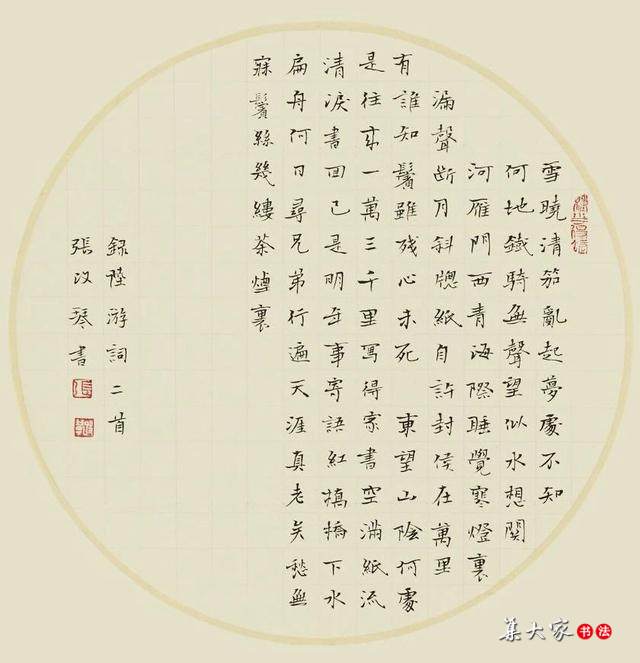 雪曉清笳亂起夢處不知
何地鐵騎無聲望似水想關
河雁門西青海際睡覺寒燈裏
漏聲斷月斜牕紙自許封侯在萬里
有誰知鬢雖殘心未死 東望山陰何處
是往來一萬三千里寫得家書空滿紙流
清淚書回已是明年事寄語紅橋橋下水
扁舟何日尋兄弟行遍天涯真老矣愁無
寐鬢絲幾縷茶煙裏
錄陸游詞二首
張改琴書
集大家 书法